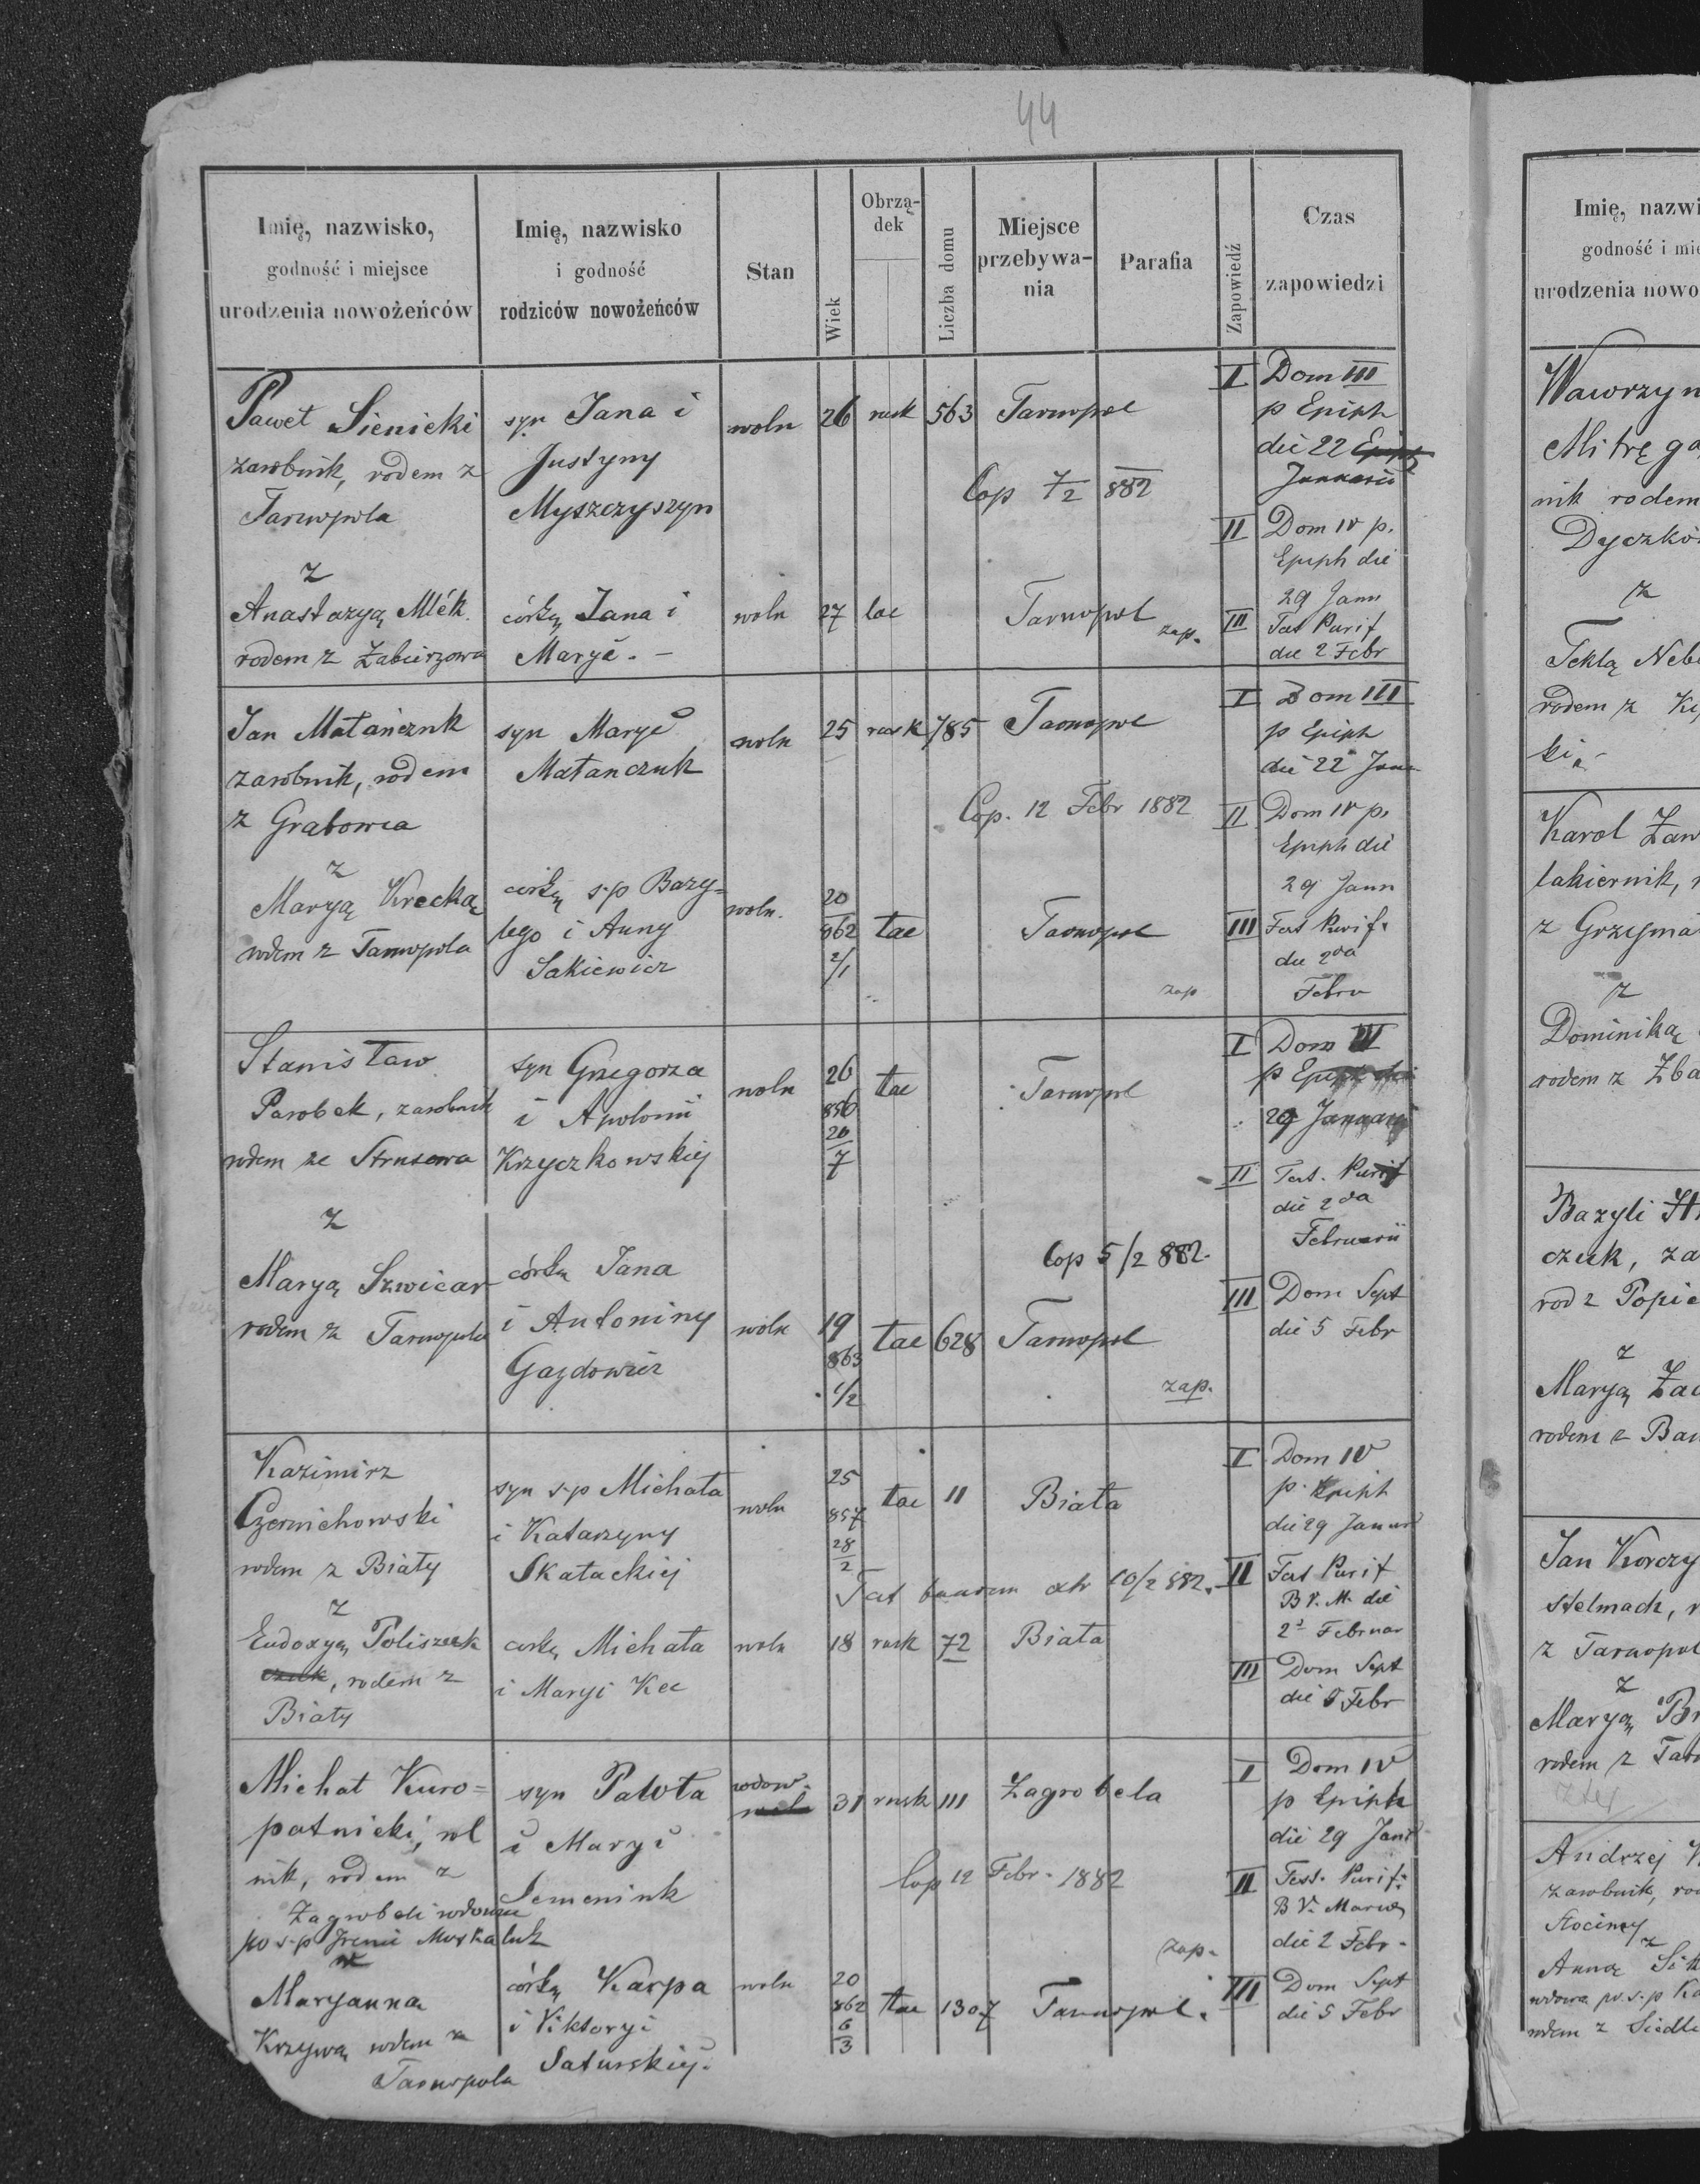 44
Imię, nazwisko,
godność i miejsce
urodzenia nowożeńców
Imię, nazwisko
i godność
rodziców nowożeńców
Stan
Wiek
Obrzą-
dek
Liczba domu
Miejsce
przebywa-
nia
Parafia
Zapowiedź
Czas
zapowiedzi
Paweł Sienicki
zarobnik, rodem z
Tarnopola
z
Anastazyą Mlék.
rodem z Zabierzowa
syn Jana i
Justyny
Myszczyszyn
córką Jana i
Maryi. –
woln 26 rusk 563 Tarnopol
Cop 7/2 882
woln 27 łac Tarnopol
zap.
I Dom III
p Epiph
die 22 Epiph
Januarii
II Dom IV p.
Epiph die
29 Jann
III Fest Purif
die 2 Febr
Jan Matańczuk
zarobnik, rodem
z Grabowca
z
Maryą Krecką
rodem z Tarnopola
syn Maryi
Matanczuk
córką s.p Bazy=
lego i Anny
Sakiewicz
woln 25 rusk 785 Tarnopol
Cop. 12 Febr 1882
woln. 20
862
2/1
łac Tarnopol
zap
I Dom III
p Epiph
die 22 Jann
II Dom IV p.
Epiph die
29 Jann
III Fest Purif.
die 2da
Febru
Stanisław
Parobek, zarobnik
rodem ze Strusowa
z
Maryą Szwicar
rodem z Tarnopola
syn Grzegorza
i Apolonii
Krzyczkowskiej
córką Jana
i Antoniny
Gazdowicz
woln 26
856
20
7
łac Tarnopol
Cop 5/2 882.
woln 19
863
1/2
łac 628 Tarnopol
zap.
I Dom IV
p Epiph die
29 Januarii
II Fest. Purif
die 2da
Februarii
III Dom Sept
die 5 Febr
Kazimirz
Czernichowski
rodem z Biały
z
Eudoxyą Poliszczuk
czuk, rodem z
Biały
syn s.p Michała
i Katarzyny
Skałackiej
córką Michała
i Maryi Kec
woln 25
857
28
2
łac 11 Biała
10/2 882.
woln 18 rusk 72 Biała
I Dom IV
p. Epiph
die 29 Januar
II Fest Purif
B V. M. die
2a Februar
III Dom Sept
die 5 Febr
Michał Kuro=
patnicki, rol
nik, rodem z
Zagrobeli wdowiec
po s.p Irenie Moskaluk
z
Maryanna
Krzywą rodem z
Tarnopola
syn Pawła
i Maryi
Semeniuk
córką Karpa
i Wiktoryi
Saturskiej.
wdow.
woln
31 rusk 111 Zagrobela
Cop 12 Febr. 1882
zap.
woln 20
862
6
3
łac 1307 Tarnopol.
I Dom IV
p Epiph
die 29 Jann
II Fest. Purif.
B V. Mariae
die 2 Febr.
III Dom Sept
die 5 Febr
Imię, nazwi
godność i mie
urodzenia nowo
Wawrzyn
Mitręga,
nik rodem
Dyczków
z
Teklą Neb
rodem z
ki.
Karol Zaw
lakiernik, r
z Grzyma
z
Dominiką
rodem z Zba
Bazyli
czuk, za
rod z Popie
z
Maryą Zac
rodem z
Jan Korczy
stelmach, r
z Tarnopol
z
Maryą Br
rodem z Tar
z tej
Andrzej
zarobnik, ro
z
Anną
wdowa po s.p Ka
rodem z Siedli